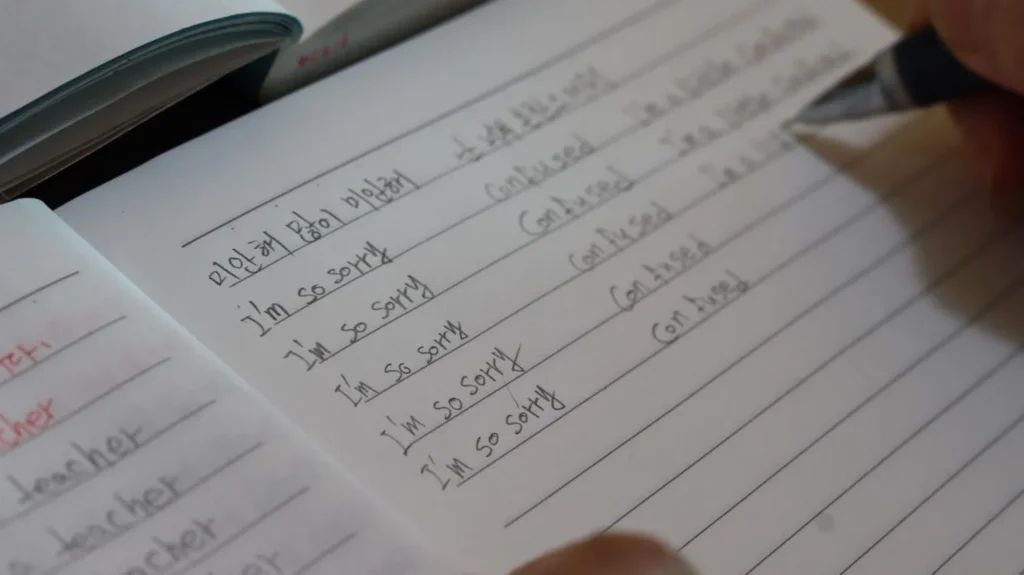 cher
teacher
a teacher
cher
미안해 많이 미안해
I'm so sorry confused I'm a little confused
I'm so sorry confused I'm a little confused
I'm so sorry confused I'm a
I'm so sorry confused
I'm so sorry confused